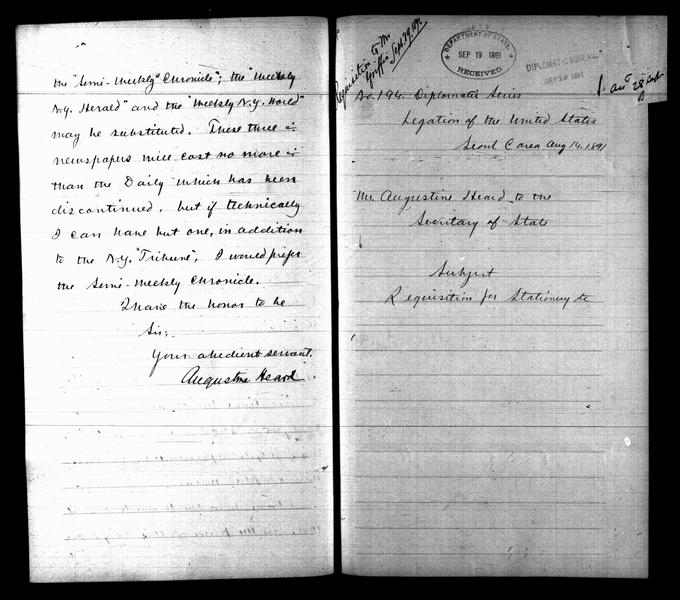 the "Semi-Weekly" Chronicle"; the "Weekly
N.Y. Herald" and the "Weekly N.Y. World"
may be substituted. These three
newspapers will cost no more
than the Daily which has been
discontinued, but if technically
I can have but one, in addition
to the N.Y. "Tribune", I would prefer
the Semi-Weekly Chronicle.
I have the honor to be
Sir,
Your obedient servant.
Augustine Heard
Requisition to Mr
Griffin Sept 29, '91.
DEPARTMENT OF STATE,
SEP 19 1891
RECEIVED
DIPLOMATIC BUREAU,
SEP 19 1891
ansd 28 Sept
No. 194. Diplomatic Series
Legation of the United States
Seoul Corea Aug 14. 1891
Mr. Augustine Heard to the
Secretary of State
Subject
Requisition for Stationery &c